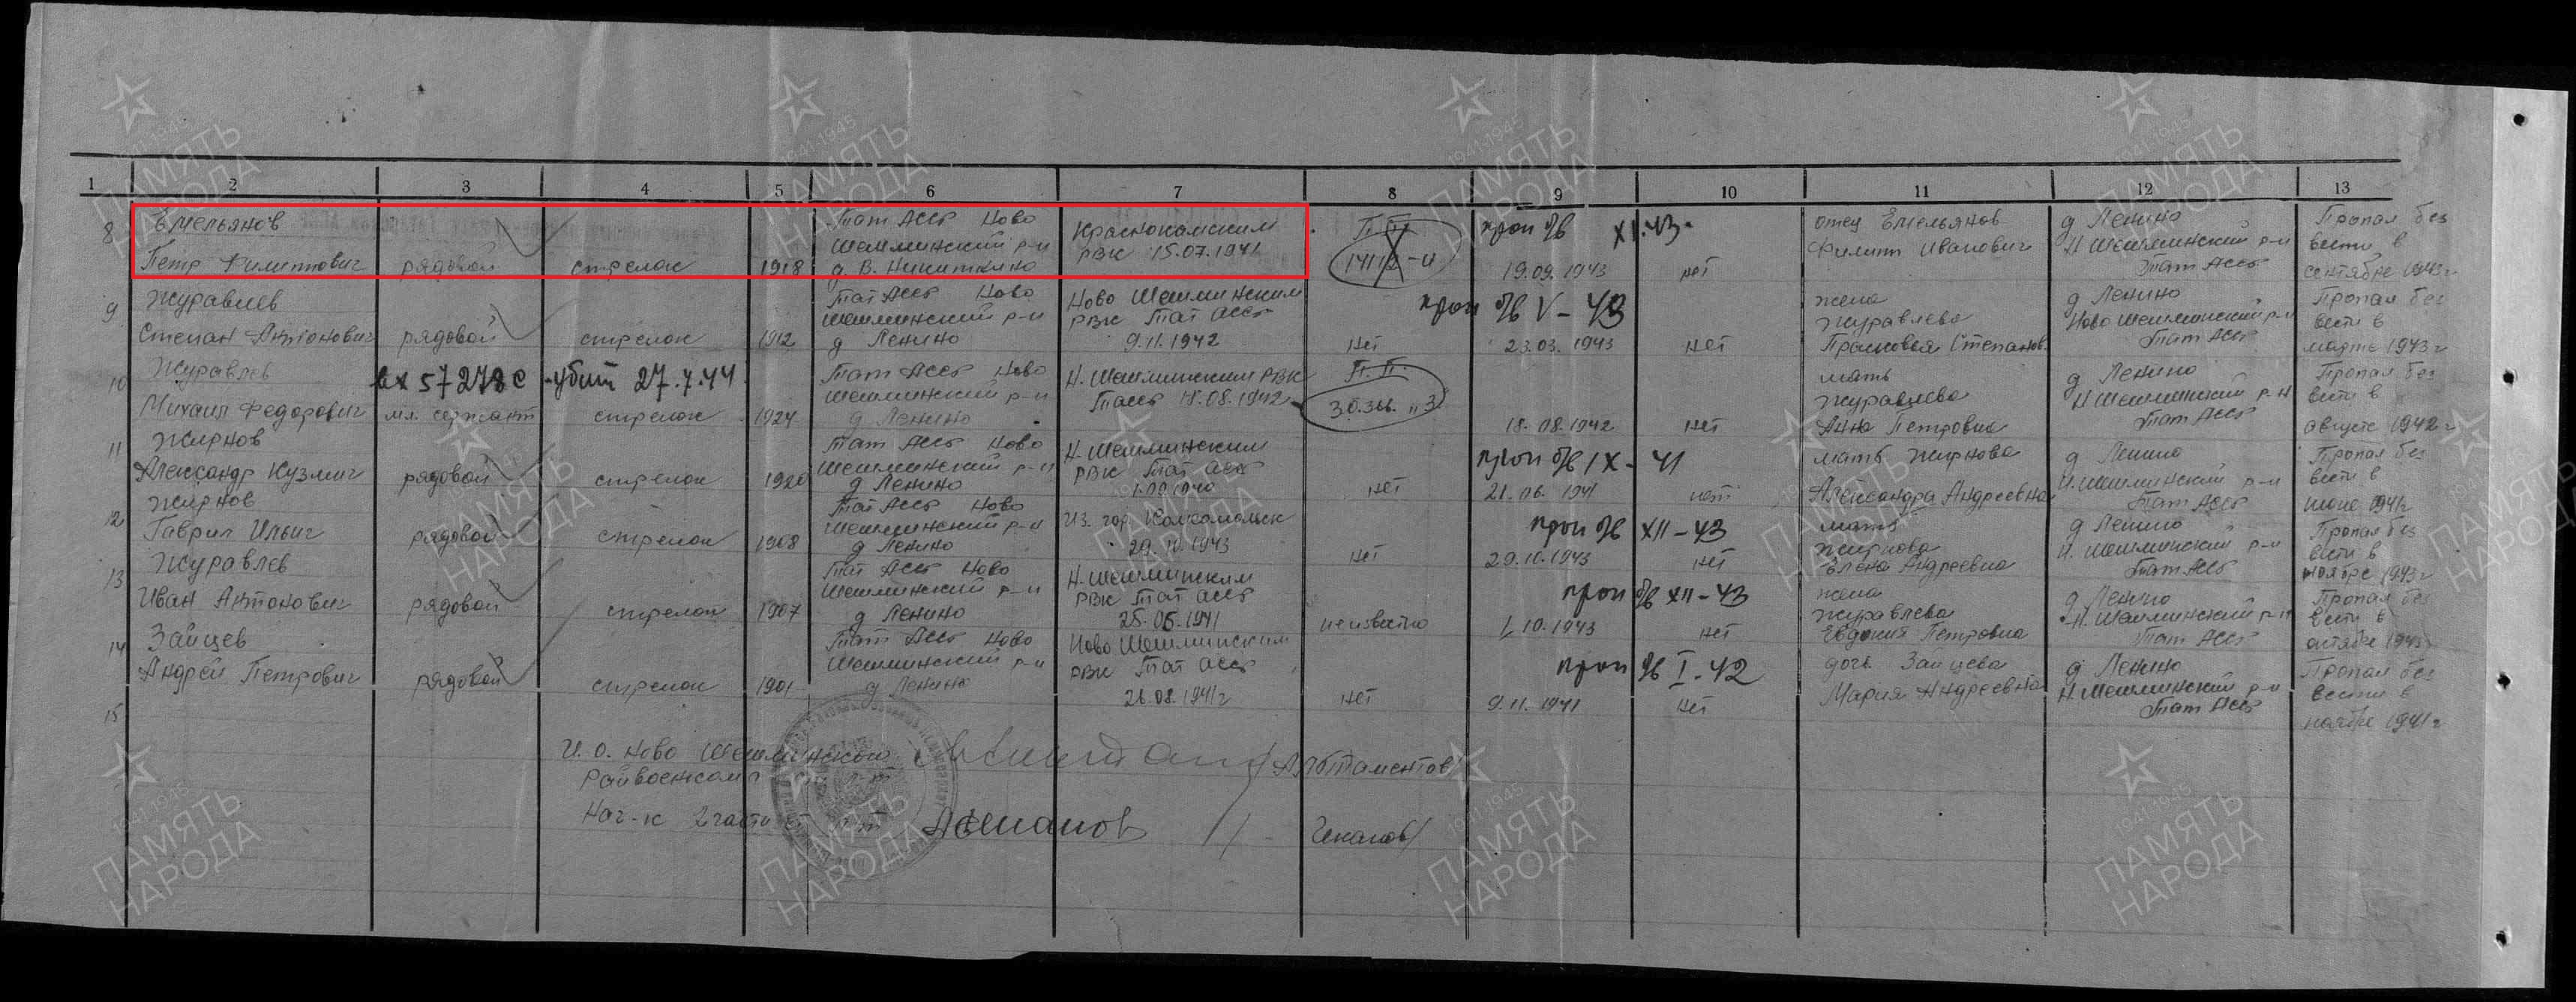 1 2 3 4 5 6 7 8 9 10 11 12 13
8 Емельянов
Петр Филиппович
рядовой
стрелок
1918
Тат АССР Ново
Шешминский р-н
д. В. Никиткино
Краснокамским
РВК 15.07.1941
П.П.
проп б/в XI.43.
19.09.1943
нет
отец Емельянов
Филипп Иванович
д Ленино
Н Шешминский р-н
Тат АССР
Пропал без
вести в
сентябре 1943 г
9 Журавлев
Степан Антонович
рядовой
стрелок
1912
Тат АССР Ново
Шешминский р-н
д Ленино
Ново Шешминским
РВК Тат АССР
9.11.1942
нет
проп б/в V-43
23.03.1943
нет
жена
Журавлева
Прасковья Степанов.
д Ленино
Ново Шешминский р-н
Тат АССР
Пропал без
вести в
марте 1943 г
10 Журавлев
Михаил Федорович
вх 57278с - убит 27.7.44
мл. сержант
стрелок
1924
Тат АССР Ново
Шешминский р-н
д Ленино
Н. Шешминским РВК
ТАССР 18.08.1942
П.П.
18.08.1942
нет
мать
Журавлева
Анна Петровна
д Ленино
Н Шешминский р-н
Тат АССР
Пропал без
вести в
августе 1942 г
11 Жирнов
Александр Кузмич
рядовой
стрелок
1920
Тат АССР Ново
Шешминский р-н
д Ленино
Н. Шешминским
РВК Тат АССР
нет
проп б/в IX-41
21.06.1941
нет
мать Жирнова
Александра Андреевна
д Ленино
Н. Шешминский р-н
Тат АССР
Пропал без
вести в
июне 1941 г
12 Жирнов
Гаврил Ильич
рядовой
стрелок
1908
Тат АССР Ново
Шешминский р-н
д Ленино
Из. гор. Комсомольск
29.10.1943
нет
проп б/в XII-43
29.10.1943
нет
мать
Жирнова
Елена Андреевна
д Ленино
Н. Шешминский р-н
Тат АССР
Пропал без
вести в
ноябре 1943 г
13 Журавлев
Иван Антонович
рядовой
стрелок
1907
Тат АССР Ново
Шешминский р-н
д Ленино
Н. Шешминским
РВК Тат АССР
25.05.1941
неизвестно
проп б/в XII-43
10.1943
нет
жена
Журавлева
Евдокия Петровна
д Ленино
Н. Шешминский р-н
Тат АССР
Пропал без
вести в
октябре 1943 г
14 Зайцев
Андрей Петрович
рядовой
стрелок
1901
Тат АССР Ново
Шешминский р-н
д Ленино
Ново Шешминским
РВК Тат АССР
26.08.1941 г
нет
проп б/в I-42
9.11.1941
нет
дочь Зайцева
Мария Андреевна
д Ленино
Н Шешминский р-н
Тат АССР
Пропал без
вести в
ноябре 1941 г
15
И. О. Ново Шешминского
Райвоенкома
Нач-к 2 части
1941-1945
ПАМЯТЬ
НАРОДА